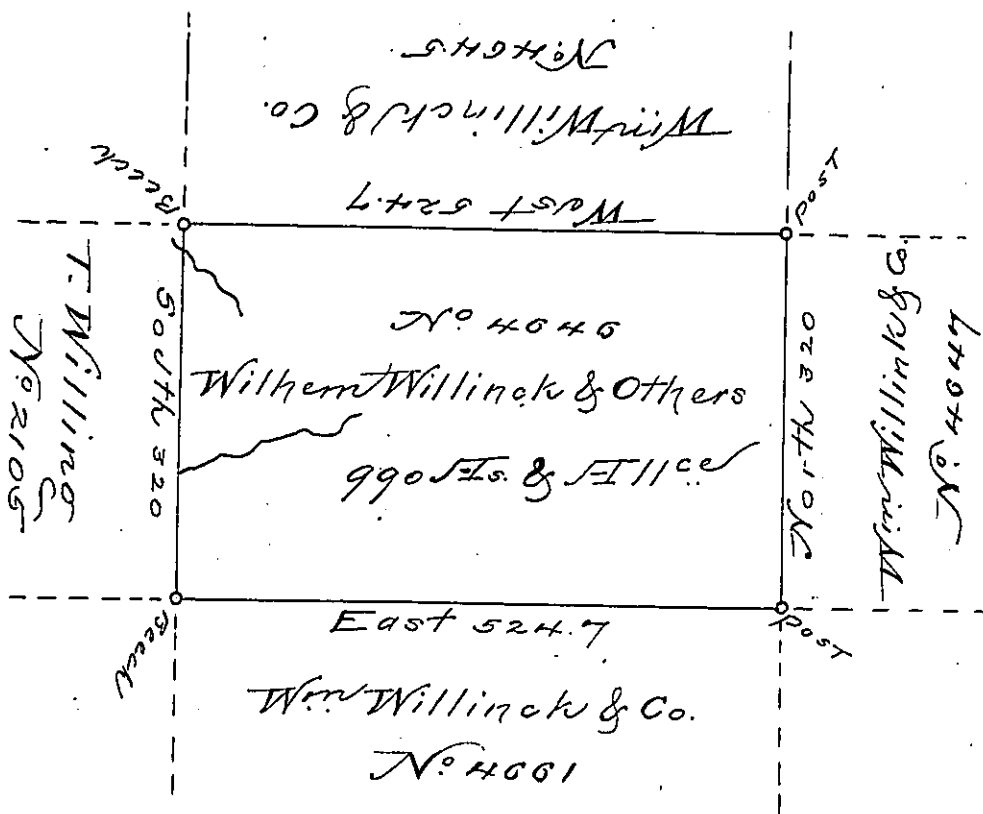 No. 4645
Wm Willinck & Co.
West 524.7
Beech
Post
T. Willing
No. 2105
South 320
No 4646
Wilhem Willinck & Others
990 As. & Allce
North 320
Wm Willink & Co.
No. 4647
Beech
East 524.7
Post
Wm Willinck & Co.
No. 4661